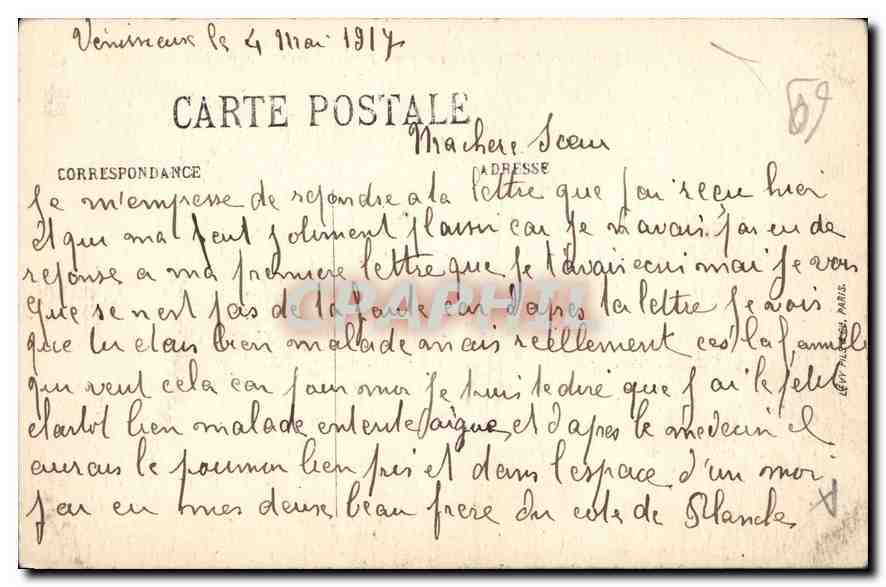 Vénissieux le 4 Mai 1917
CARTE POSTALE
Ma chere Sœur
CORRESPONDANCE
ADRESSE
Je m'empresse de repondre a ta lettre que j'ai reçu hier
et qui ma fait joliment plaisir car je n'avais pas eu de
reponse a ma premiere lettre que je t'avais ecri mai je vois
que se nest pas de ta faute car d'apres ta lettre je vois
que tu etais bien malade mais réellement ces la famille
qui veut cela car pour moi je puis te dire que j'ai le petit
bien malade enterite aigue et d'apres le medecin il
aurais le poumon bien pris et dans l'espace d'un moi
j'ai eu mes deux beau frere du cote de Blanche
LEVY FILS & Cie PARIS.
69
CARAPHIL